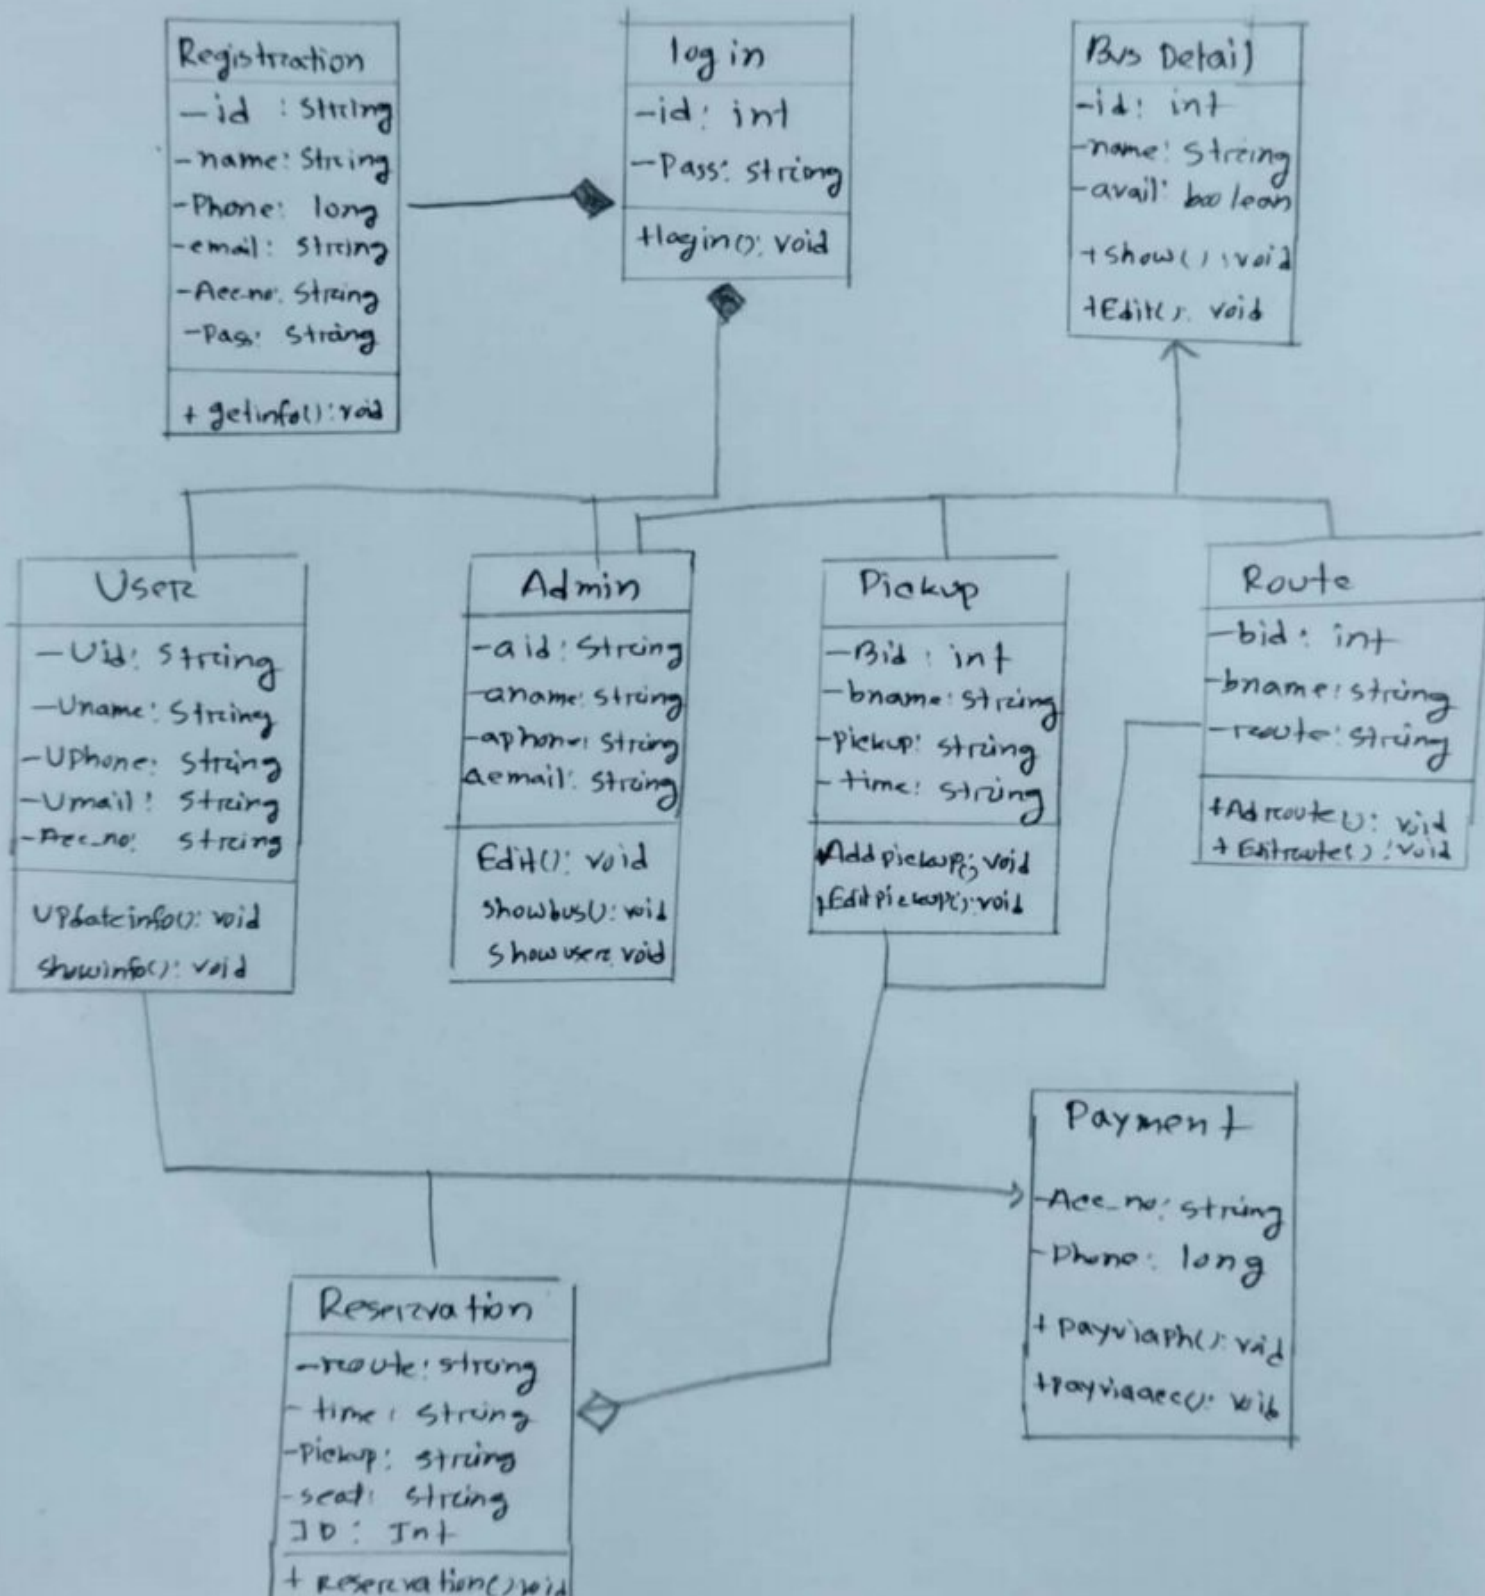 Registration
- id : String
- name: String
- Phone: long
- email: String
- Acc.no: String
- Pass: String
+ getinfo(): void
log in
- id: int
- Pass: string
+ login(): void
Bus Detail
- id: int
- name: String
- avail: boolean
+ show(): void
+ Edit(): void
User
- Uid: String
- Uname: String
- UPhone: String
- Umail: String
- Acc_no: string
Updateinfo(): void
showinfo(): void
Admin
- aid: String
- aname: string
- aphone: string
aemail: string
Edit(): void
showbus(): void
showuser: void
Pickup
- Bid: int
- bname: string
- pickup: string
- time: string
Addpickup(): void
+ Editpickup(): void
Route
- bid: int
- bname: string
- route: string
+ Adroute(): void
+ Editroute(): void
Payment
- Acc_no: string
- Phone: long
+ payviaph(): void
+ payviaacc(): void
Reservation
- route: string
- time: string
- Pickup: string
- seat: string
ID: Int
+ Reservation() void